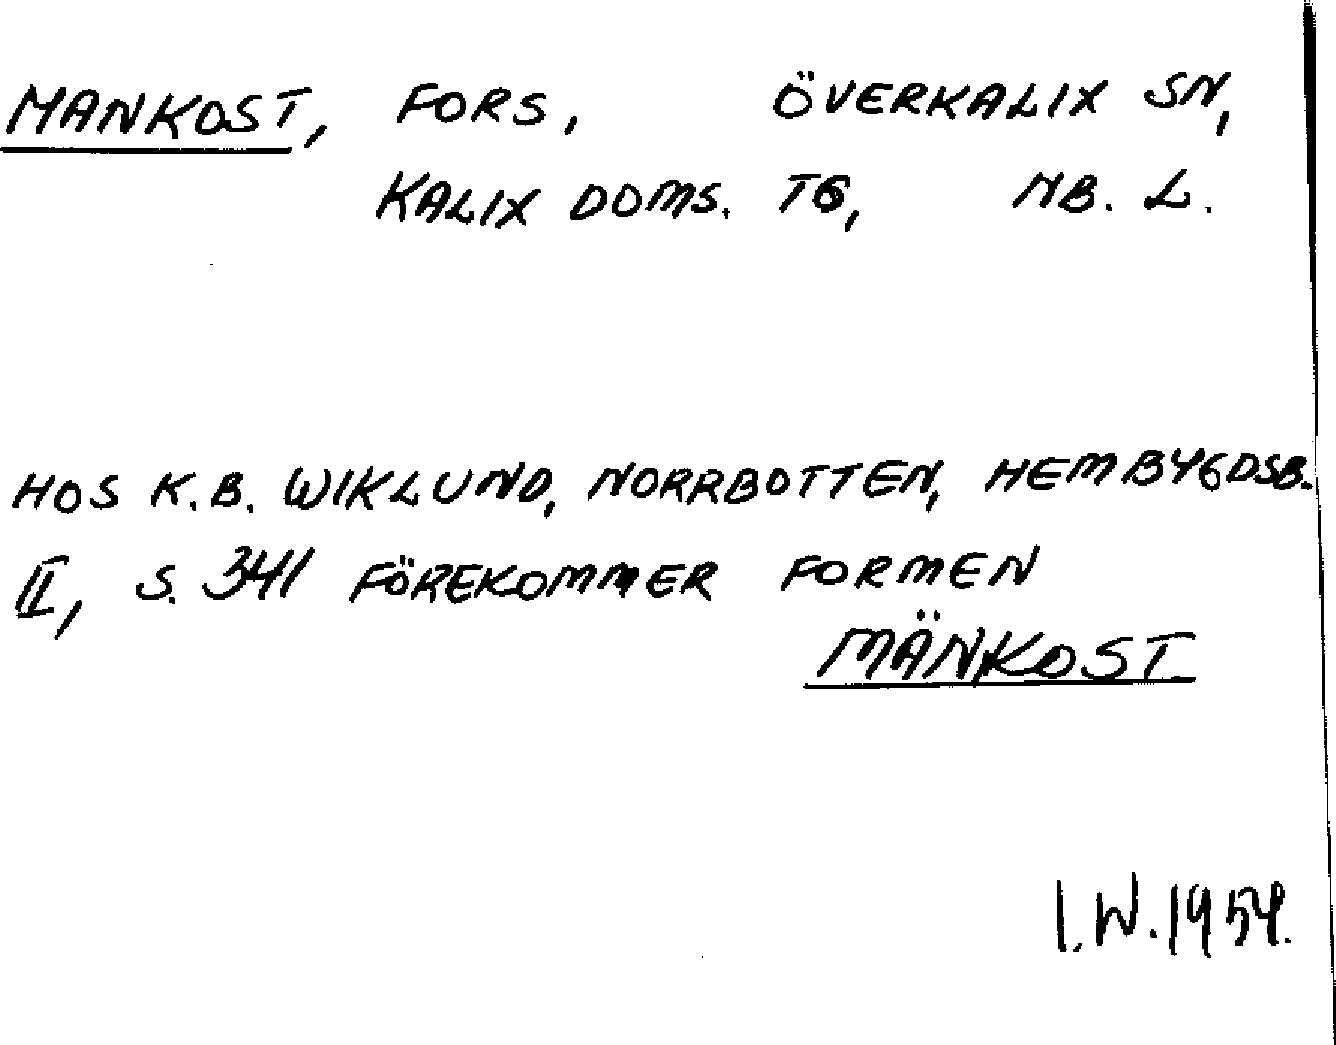 MANKOST, FORS, ÖVERKALIX SN,
KALIX DOMS. TG, NB. L.
HOS K.B. WIKLUND, NORRBOTTEN, HEMBYGDSB.
II, S. 341 FÖREKOMMER FORMEN
MÄNKOST.
I.W. 1954.